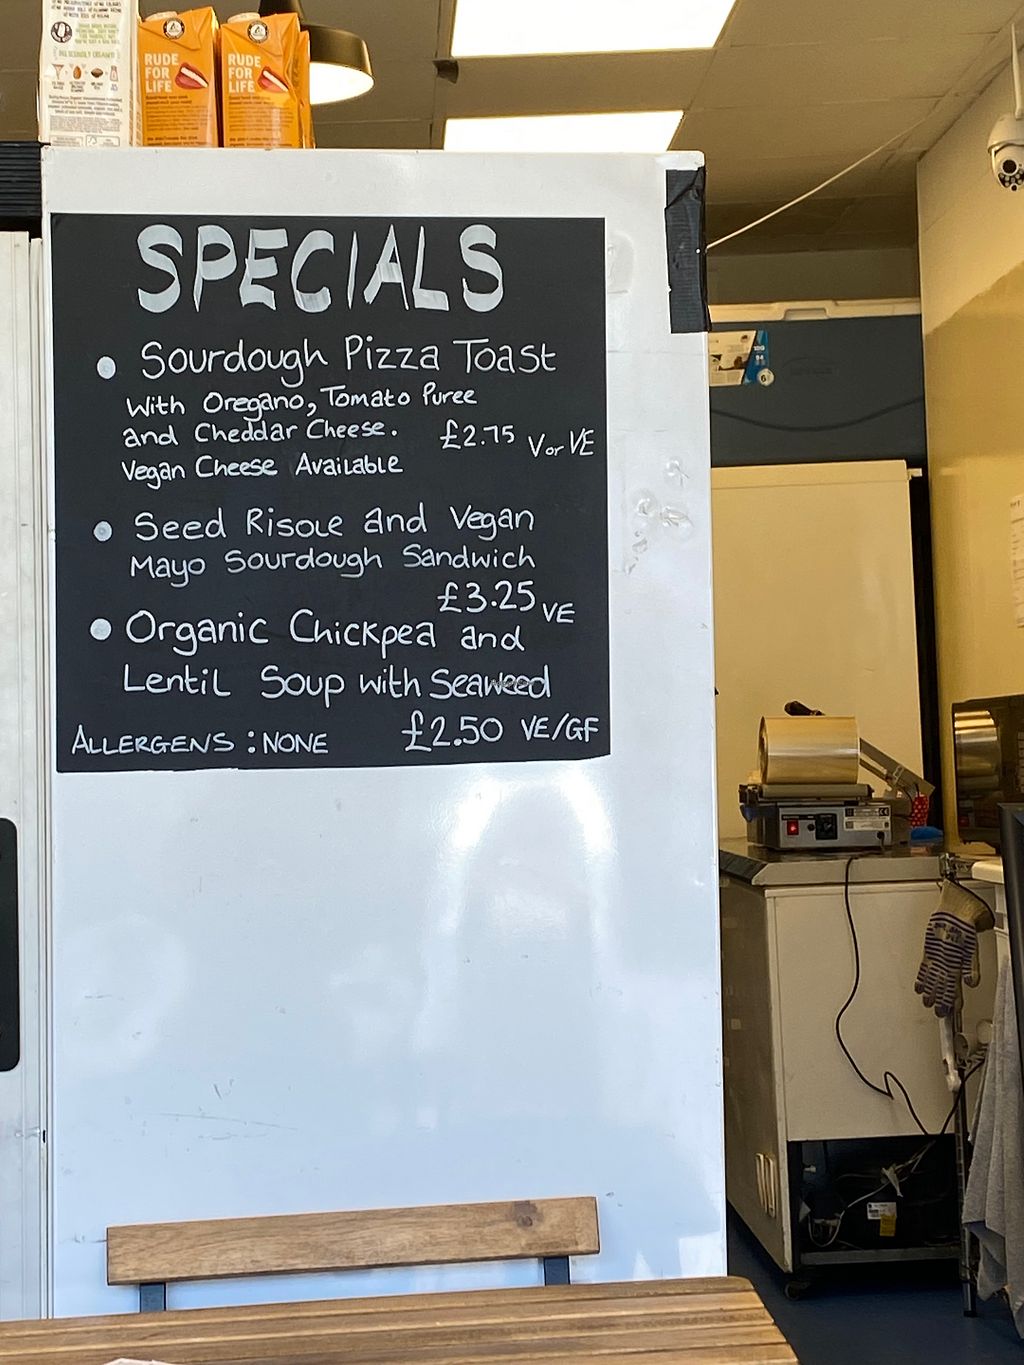 RUDE
FOR
LIFE
RUDE
FOR
LIFE
SPECIALS
Sourdough Pizza Toast
With Oregano, Tomato Puree
and Cheddar Cheese. £2.75 V or VE
Vegan Cheese Available
Seed Risole and Vegan
Mayo Sourdough Sandwich
£3.25 VE
Organic Chickpea and
Lentil Soup with Seaweed
£2.50 VE/GF
ALLERGENS : NONE